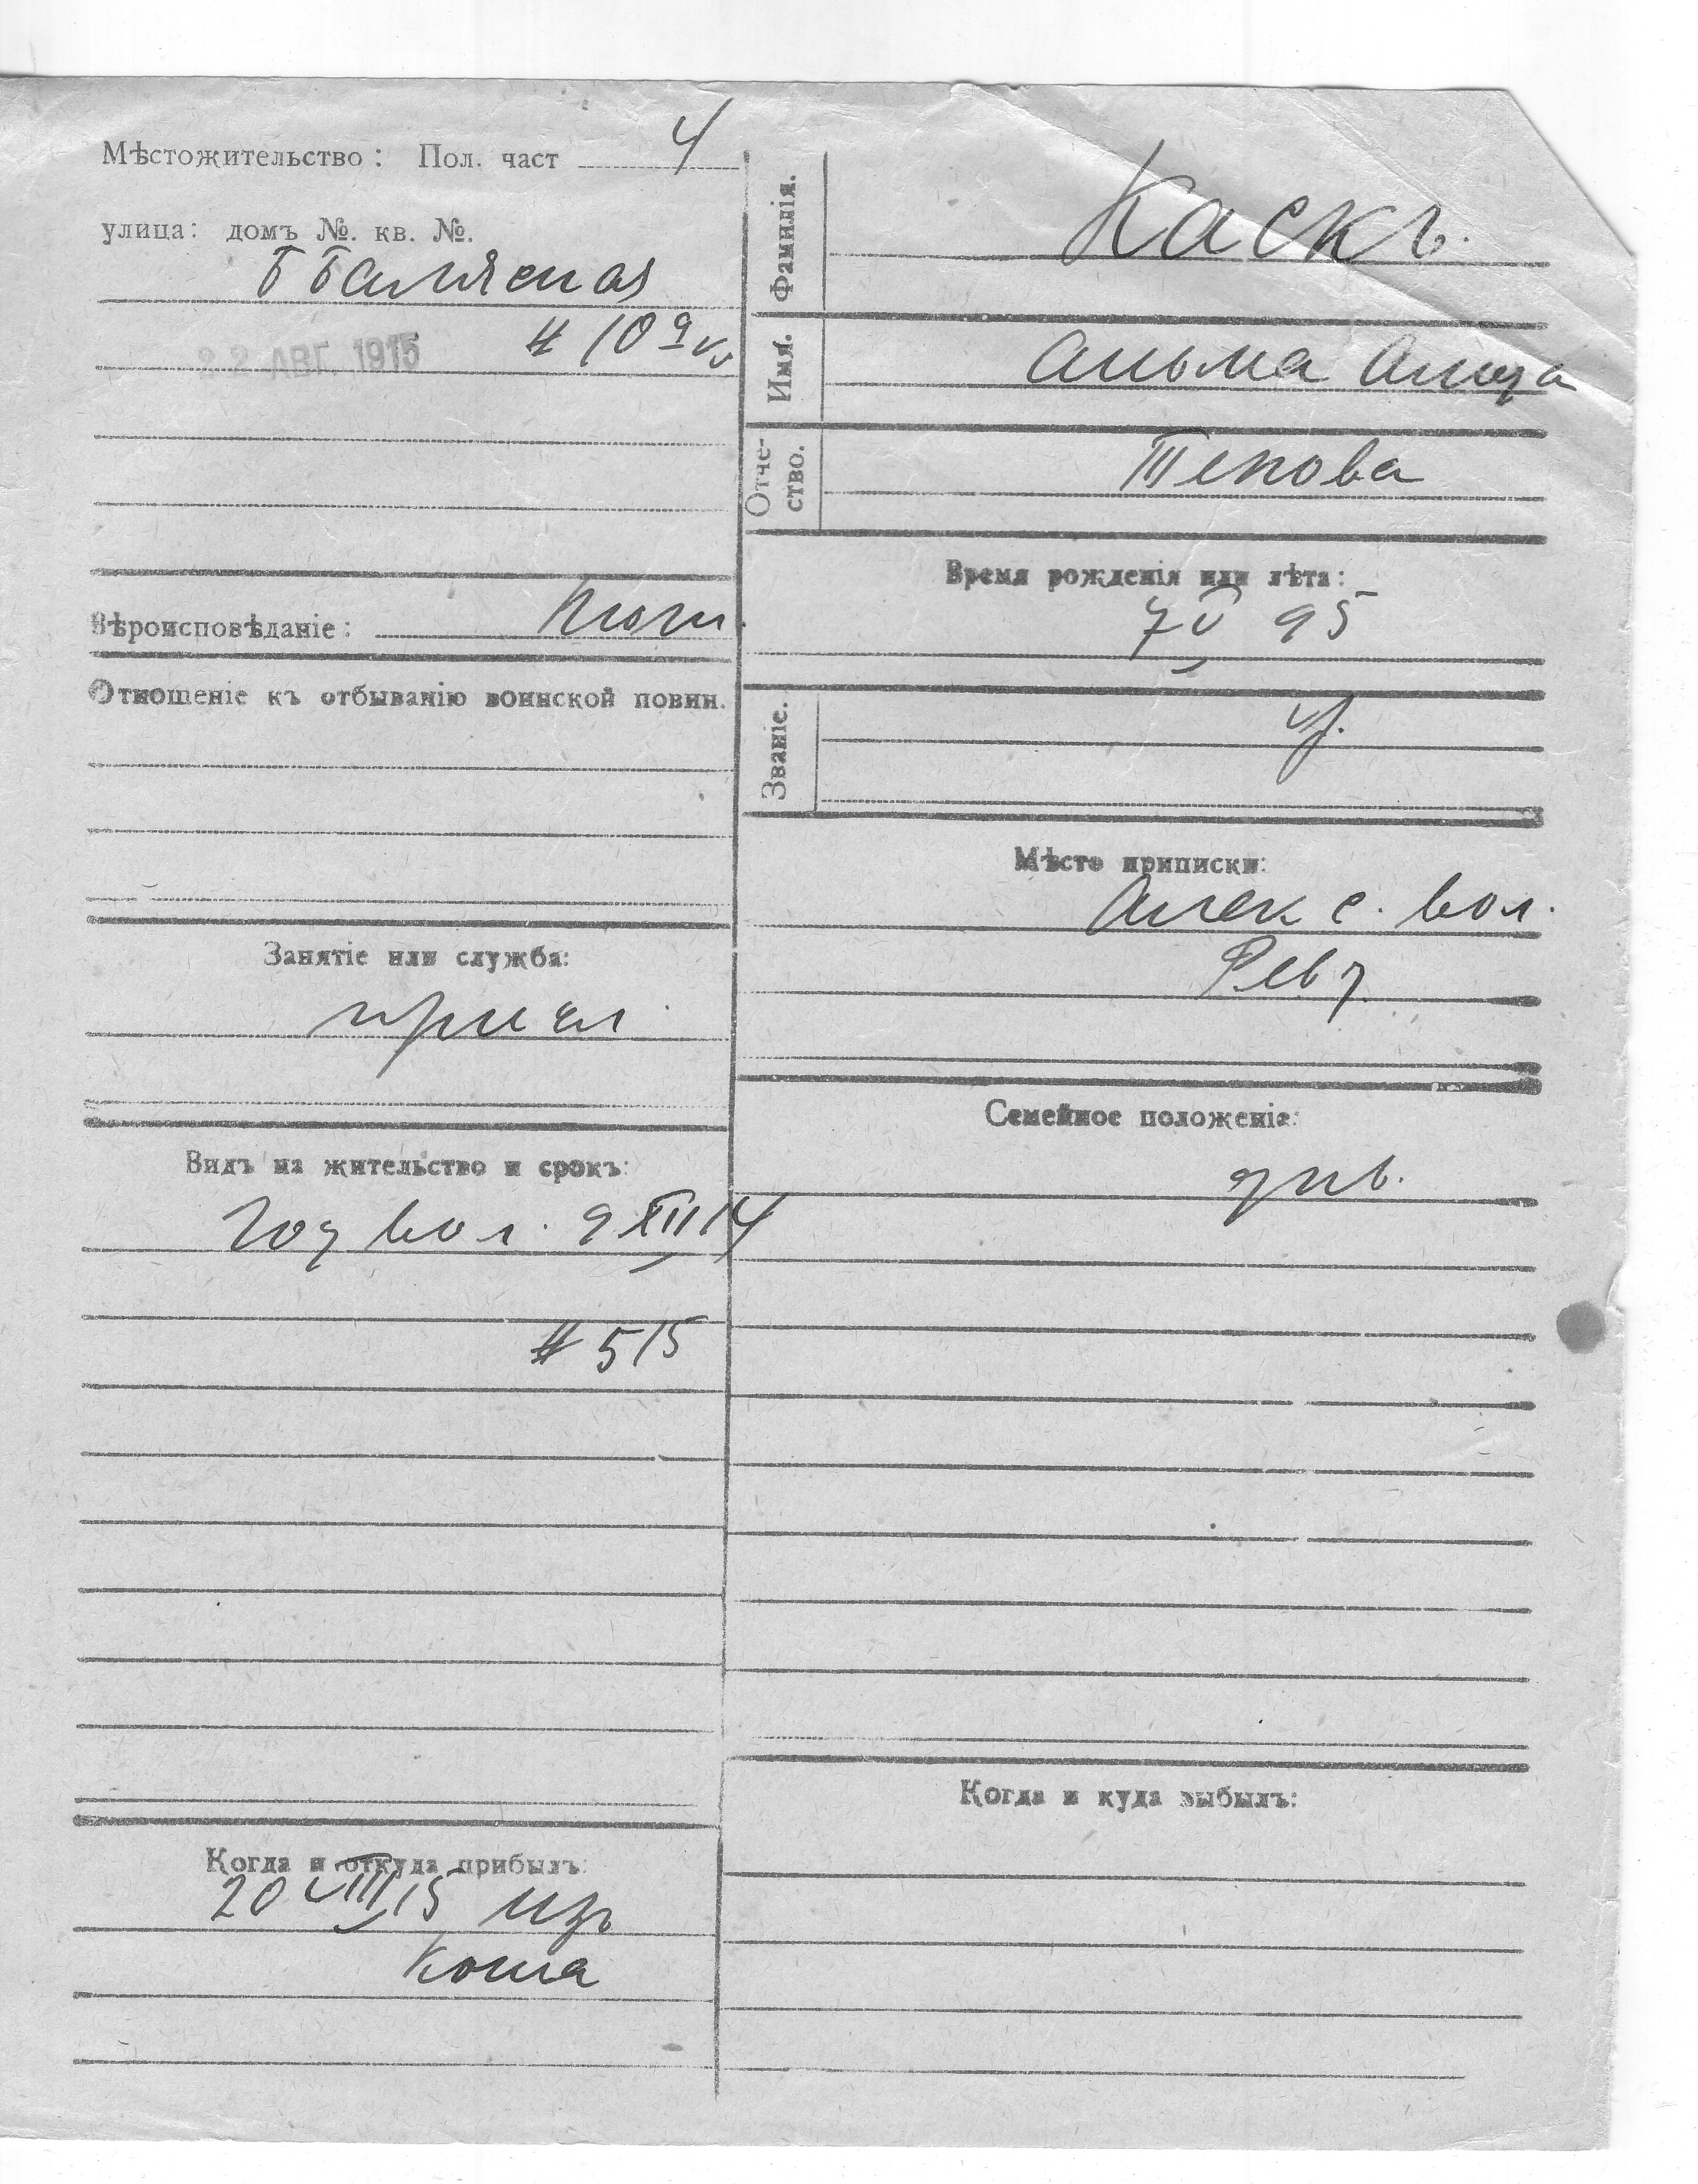 Мѣстожительство: Пол. част 4
улица: домъ №. кв. №.
22 АВГ. 1915
Вѣроисповѣданіе: Лют
Отношеніе къ отбыванію воинской повин.
Занятіе или служба:
присл.
Видъ на жительство и срокъ:
Год вол. 9 XII 14
# 515
Когда и откуда прибылъ:
20 VIII 15 изъ
Фамилія.
Каскъ.
Имя.
Альма Алида
Отче-
ство.
Время рожденія или лѣта:
7 V 95
Званіе.
Мѣсто приписки:
Алекс. вол.
Рев у.
Семейное положеніе:
дѣв.
Когда и куда выбылъ: